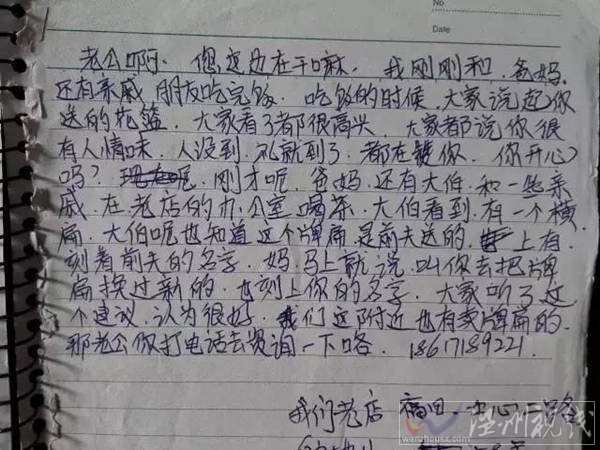 No
Date
老公啊. 您这边在干嘛. 我刚刚和. 爸妈.
还有亲戚 朋友吃完饭. 吃饭的时候. 大家说起你
送的花篮. 大家看了都很高兴. 大家都说你很
有人情味. 人没到. 礼就到了. 都在夸你. 你开心
吗? 刚才呢. 爸妈. 还有大伯. 和一些亲
戚. 在老店的办公室喝茶. 大伯看到. 有一个横
扁. 大伯呢也知道这个牌扁是前夫送的. 上有
刻着前夫的名字. 妈. 马上就说. 叫你去把牌
扁换过新的. 也刻上你的名字. 大家听了这
个建议. 认为很好. 我们这附近也有卖牌扁的.
那老公你打电话去资询一下咯. 18617189221.
我们老店 福田. 中心二路
温州视线
wenzhousx.com